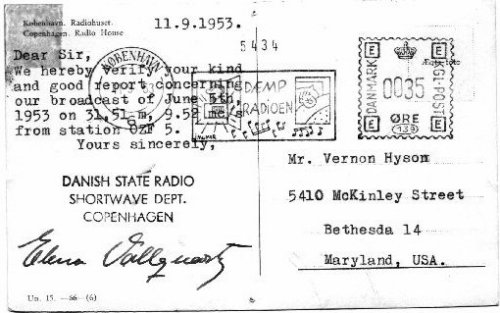 København. Radiohuset.
Copenhagen. Radio House
11.9.1953.
5434
Dear Sir,
We hereby verify your kind
and good report concerning
our broadcast of June 5th,
1953 on 31,51 m, 9.52 mc.s
from station OZF 5.
Yours sincerely,
DANISH STATE RADIO
SHORTWAVE DEPT.
COPENHAGEN
Un. 15. -56 (6)
KØBENHAVN
DÆMP
RADIOEN
DANMARK
0035
GL-POST
ØRE
E
E
E
E
Mr. Vernon Hyson
5410 McKinley Street
Bethesda 14
Maryland, USA.